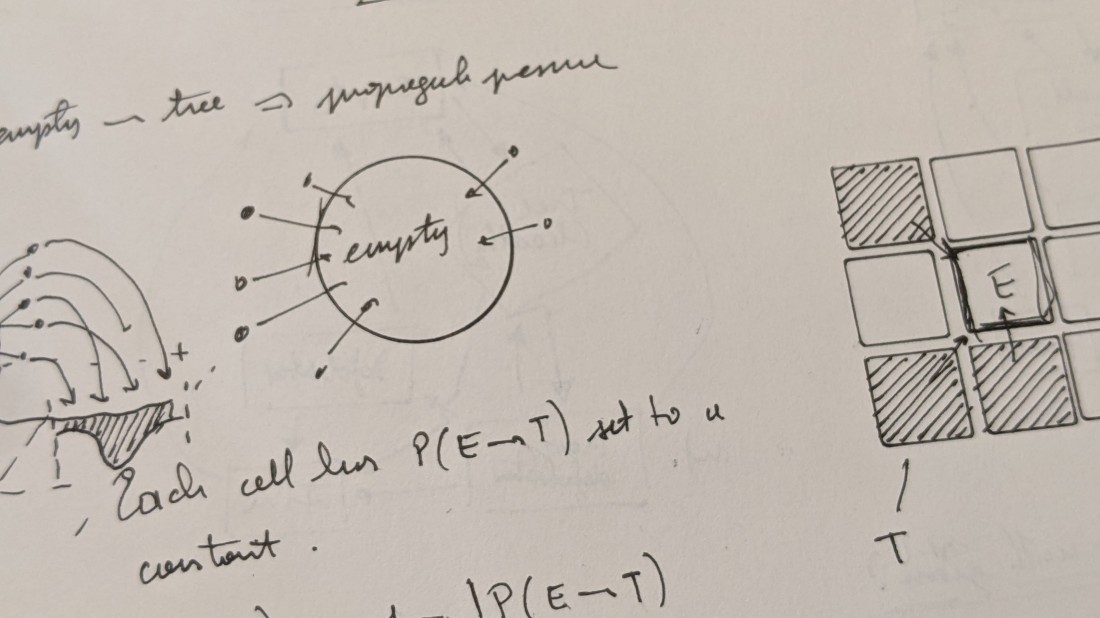 empty → tree ⇒ propagule pressure
empty
- +
E
Each cell has P(E→T) set to a
constant.
T
P(E→T)